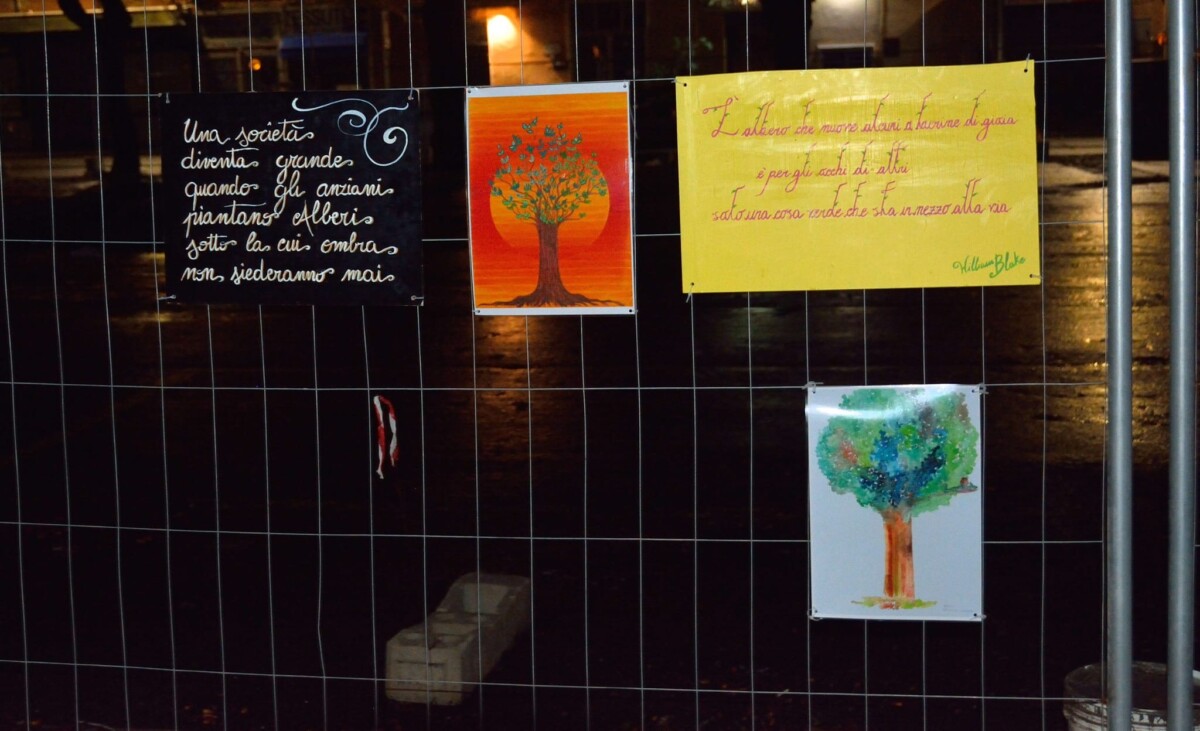 Una società
diventa grande
quando gli anziani
piantano Alberi
sotto la cui ombra
non siederanno mai
L'albero che muove alcuni a lacrime di gioia
è per gli occhi di altri
solo una cosa verde che sta in mezzo alla via
William Blake